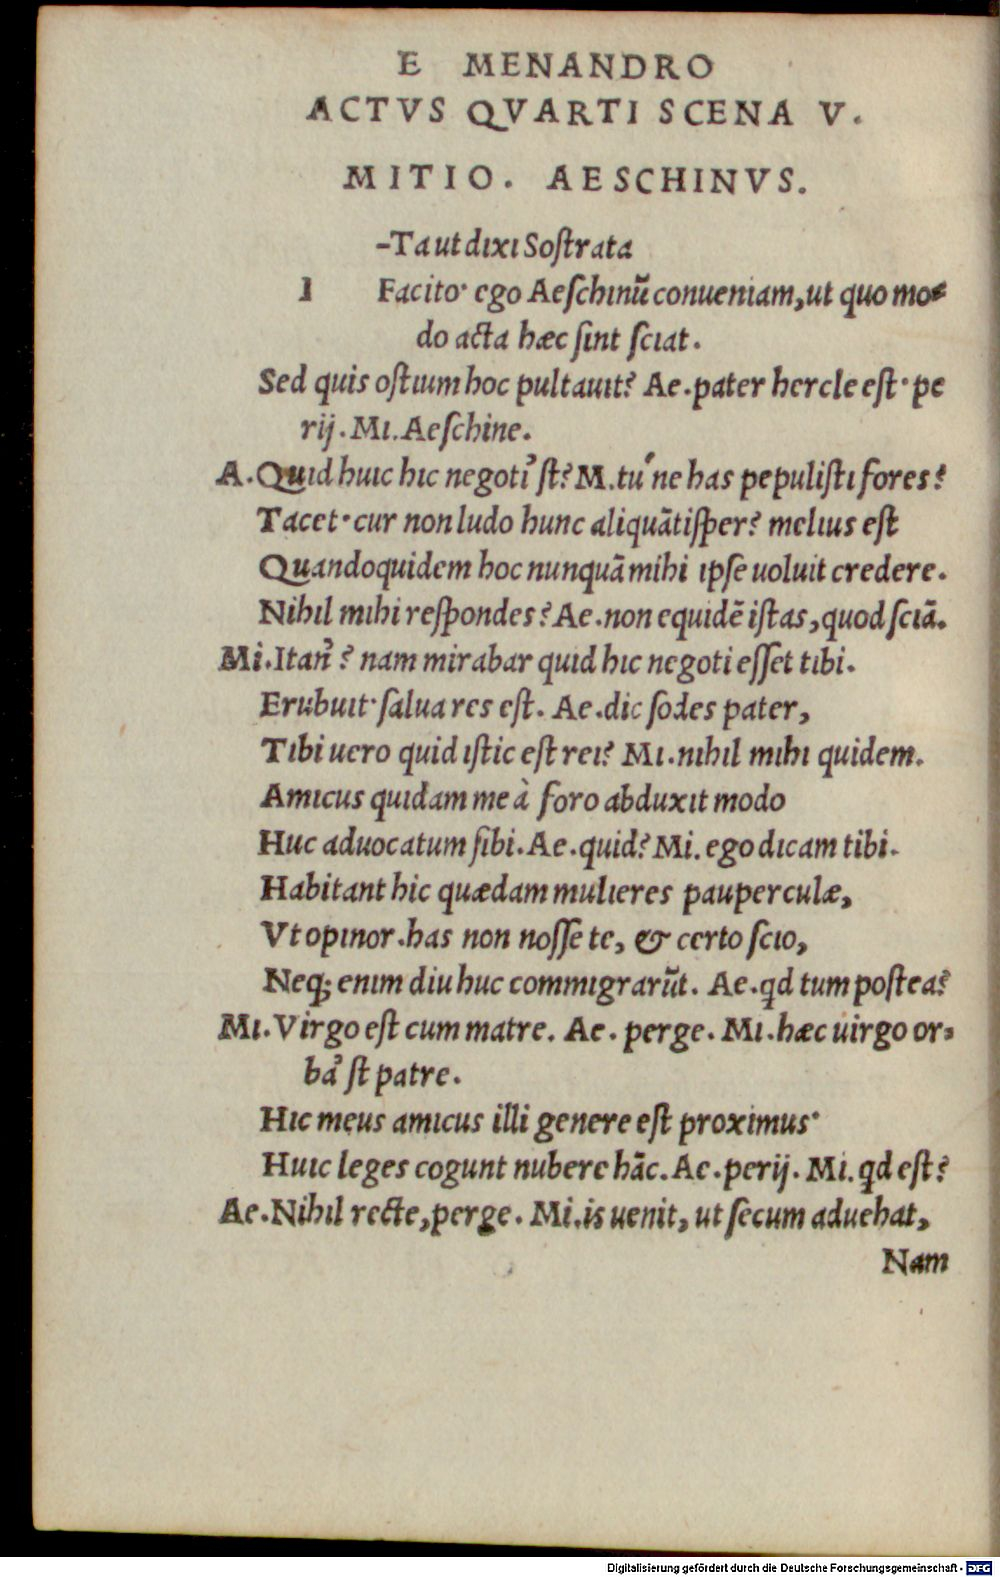 E MENANDRO
ACTVS QVARTI SCENA V.
MITIO. AESCHINVS.
-Ta ut dixi Sostrata
I Facito· ego Aeschinū conueniam, ut quo mo-
do acta hæc sint sciat.
Sed quis ostium hoc pultauit? Ae. pater hercle est· pe
rij. Mi. Aeschine.
A. Quid huic hic negoti' st? M. tu' ne has pepulisti fores?
Tacet· cur non ludo hunc aliquātisper? melius est
Quandoquidem hoc nunquā mihi ipse uoluit credere.
Nihil mihi respondes? Ae. non equidē istas, quod sciā.
Mi. Itan'? nam mirabar quid hic negoti esset tibi.
Erubuit· salua res est. Ae. dic sodes pater,
Tibi uero quid istic est rei? Mi. nihil mihi quidem.
Amicus quidam me à foro abduxit modo
Huc aduocatum sibi. Ae. quid? Mi. ego dicam tibi.
Habitant hic quædam mulieres pauperculæ,
Vt opinor. has non nosse te, & certo scio,
Neq; enim diu huc commigrarūt. Ae. qd tum postea?
Mi. Virgo est cum matre. Ae. perge. Mi. hæc uirgo or-
ba' st patre.
Hic meus amicus illi genere est proximus·
Huic leges cogunt nubere hāc. Ae. perij. Mi. qd est?
Ae. Nihil recte, perge. Mi. is uenit, ut secum aduehat,
Nam
Digitalisierung gefördert durch die Deutsche Forschungsgemeinschaft - DFG